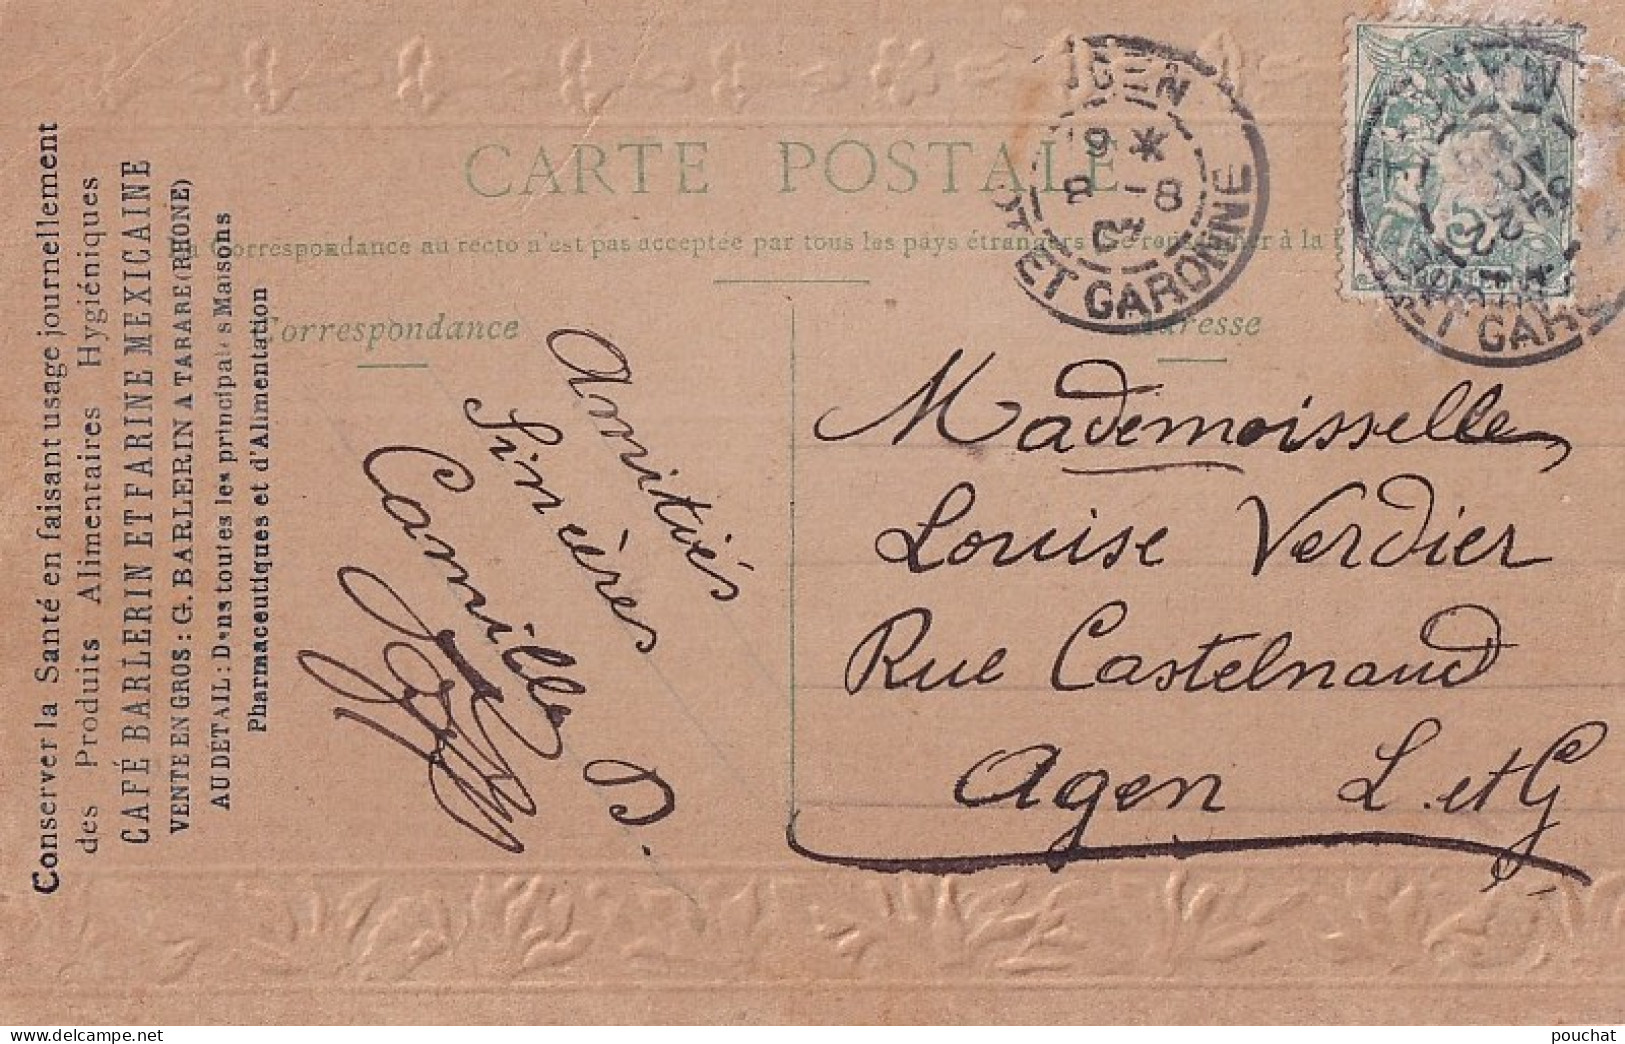 CARTE POSTALE
Correspondance au recto n'est pas acceptée par tous les pays étrangers
à la
Correspondance
Adresse
Conserver la Santé en faisant usage journellement
des Produits Alimentaires Hygiéniques
CAFÉ BARLERIN ET FARINE MEXICAINE
VENTE EN GROS : G. BARLERIN A TARARE (RHONE)
AU DETAIL : Dans toutes les principales Maisons
Pharmaceutiques et d'Alimentation
Amitiés
Sincères
Camille D.
Mademoisselle
Louise Verdier
Rue Castelnaud
Agen L. et G
AGEN
9 *
2 -8
07
LOT ET GARONNE
5
22
ET GAR
pouchat